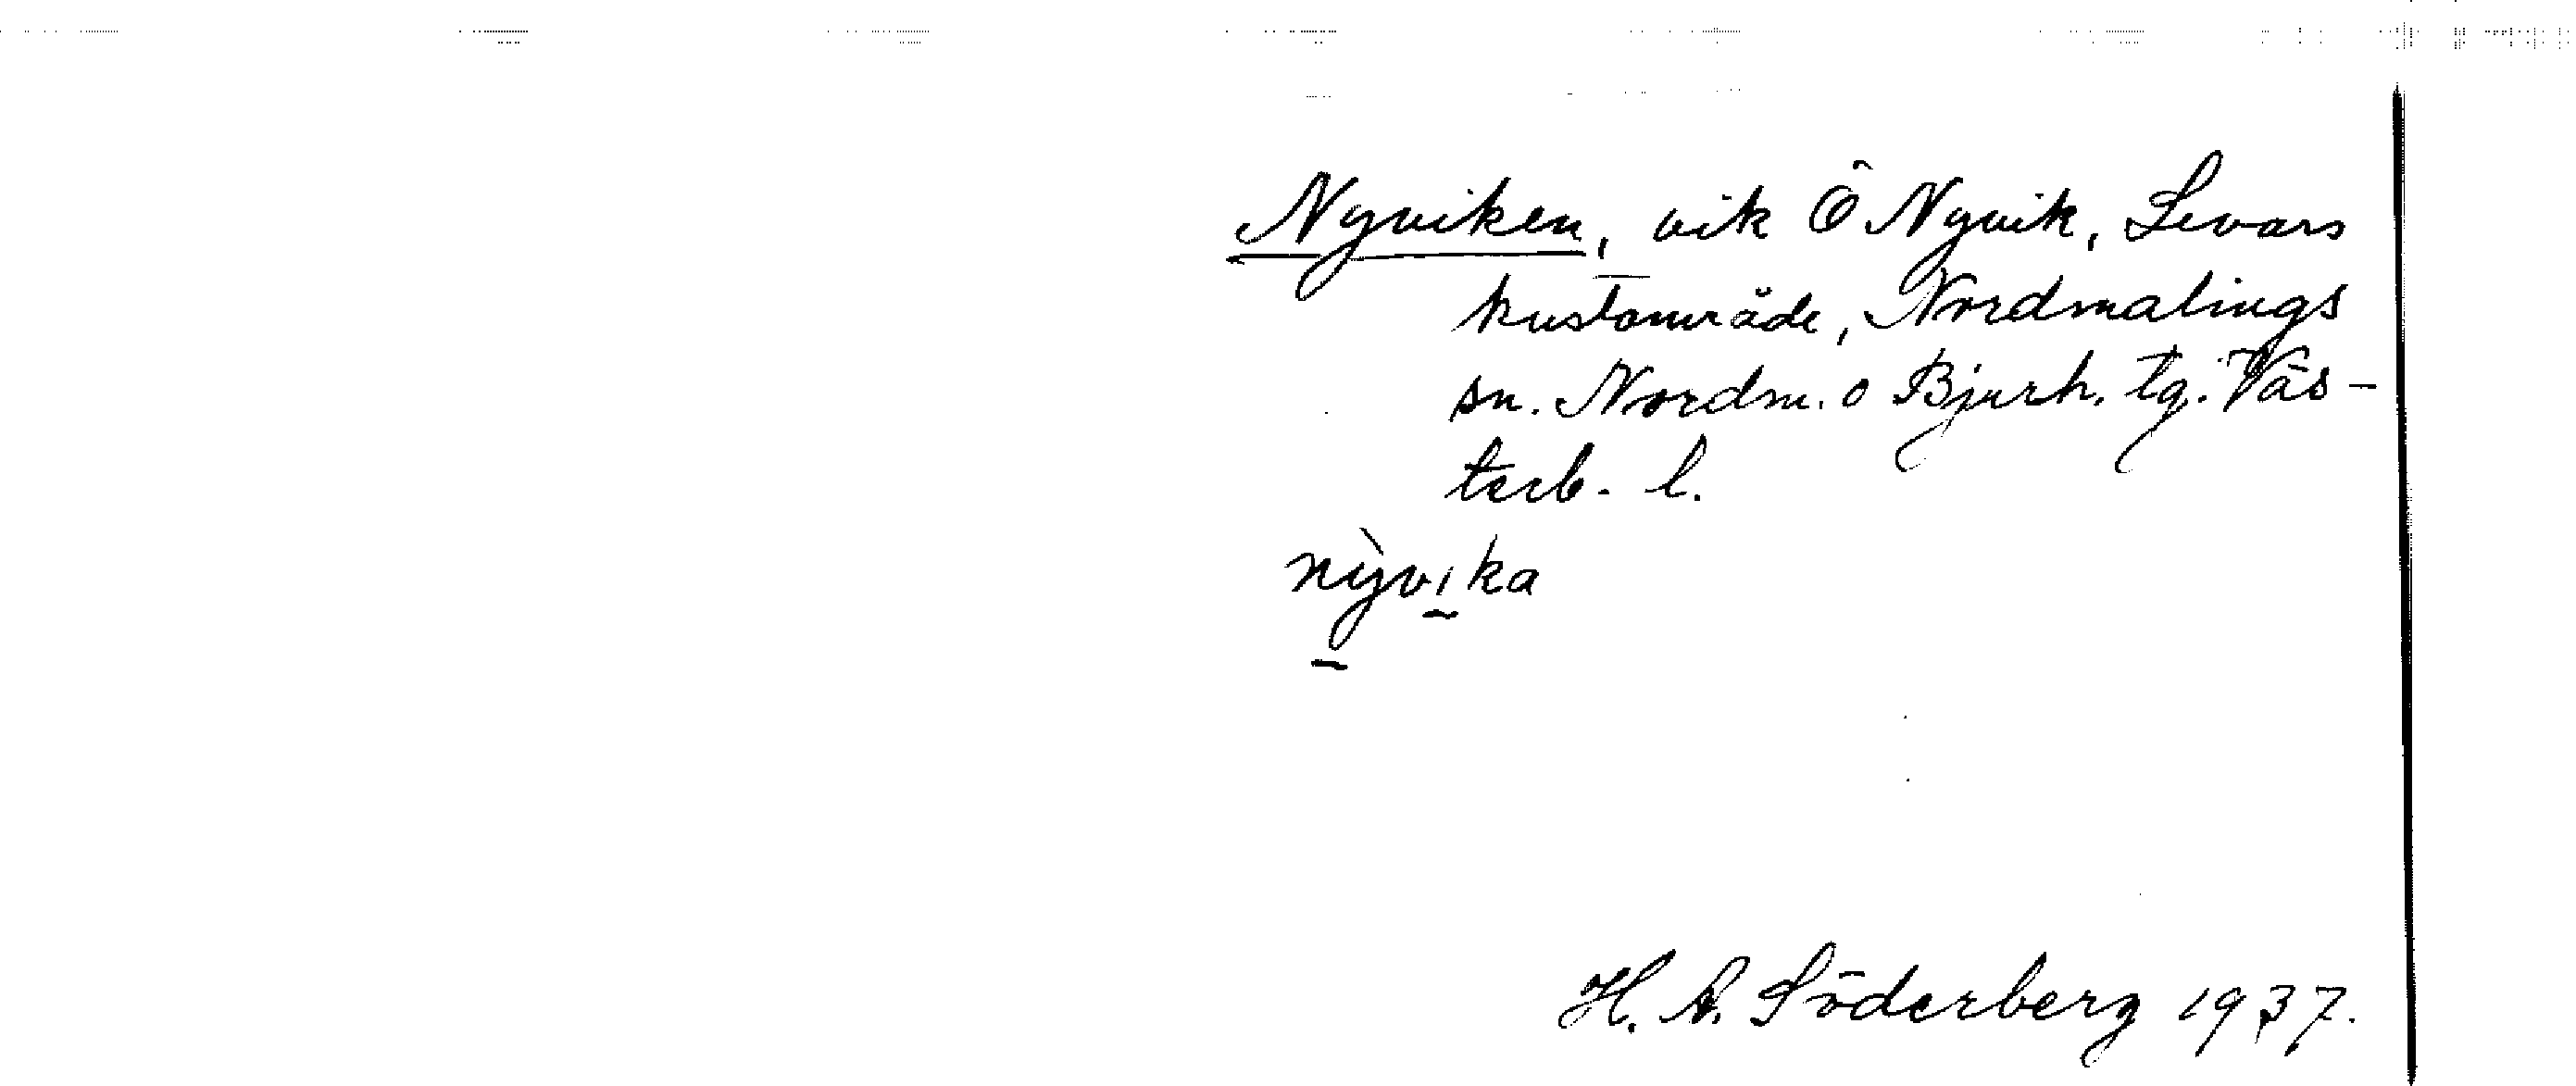 Nyviken, vik Ö Nyvik, Levars
kustområde, Nordmalings
sn. Nordm. o Bjurh. tg. Väs-
terb. l.
nỳvika
H. A. Söderberg 1937.